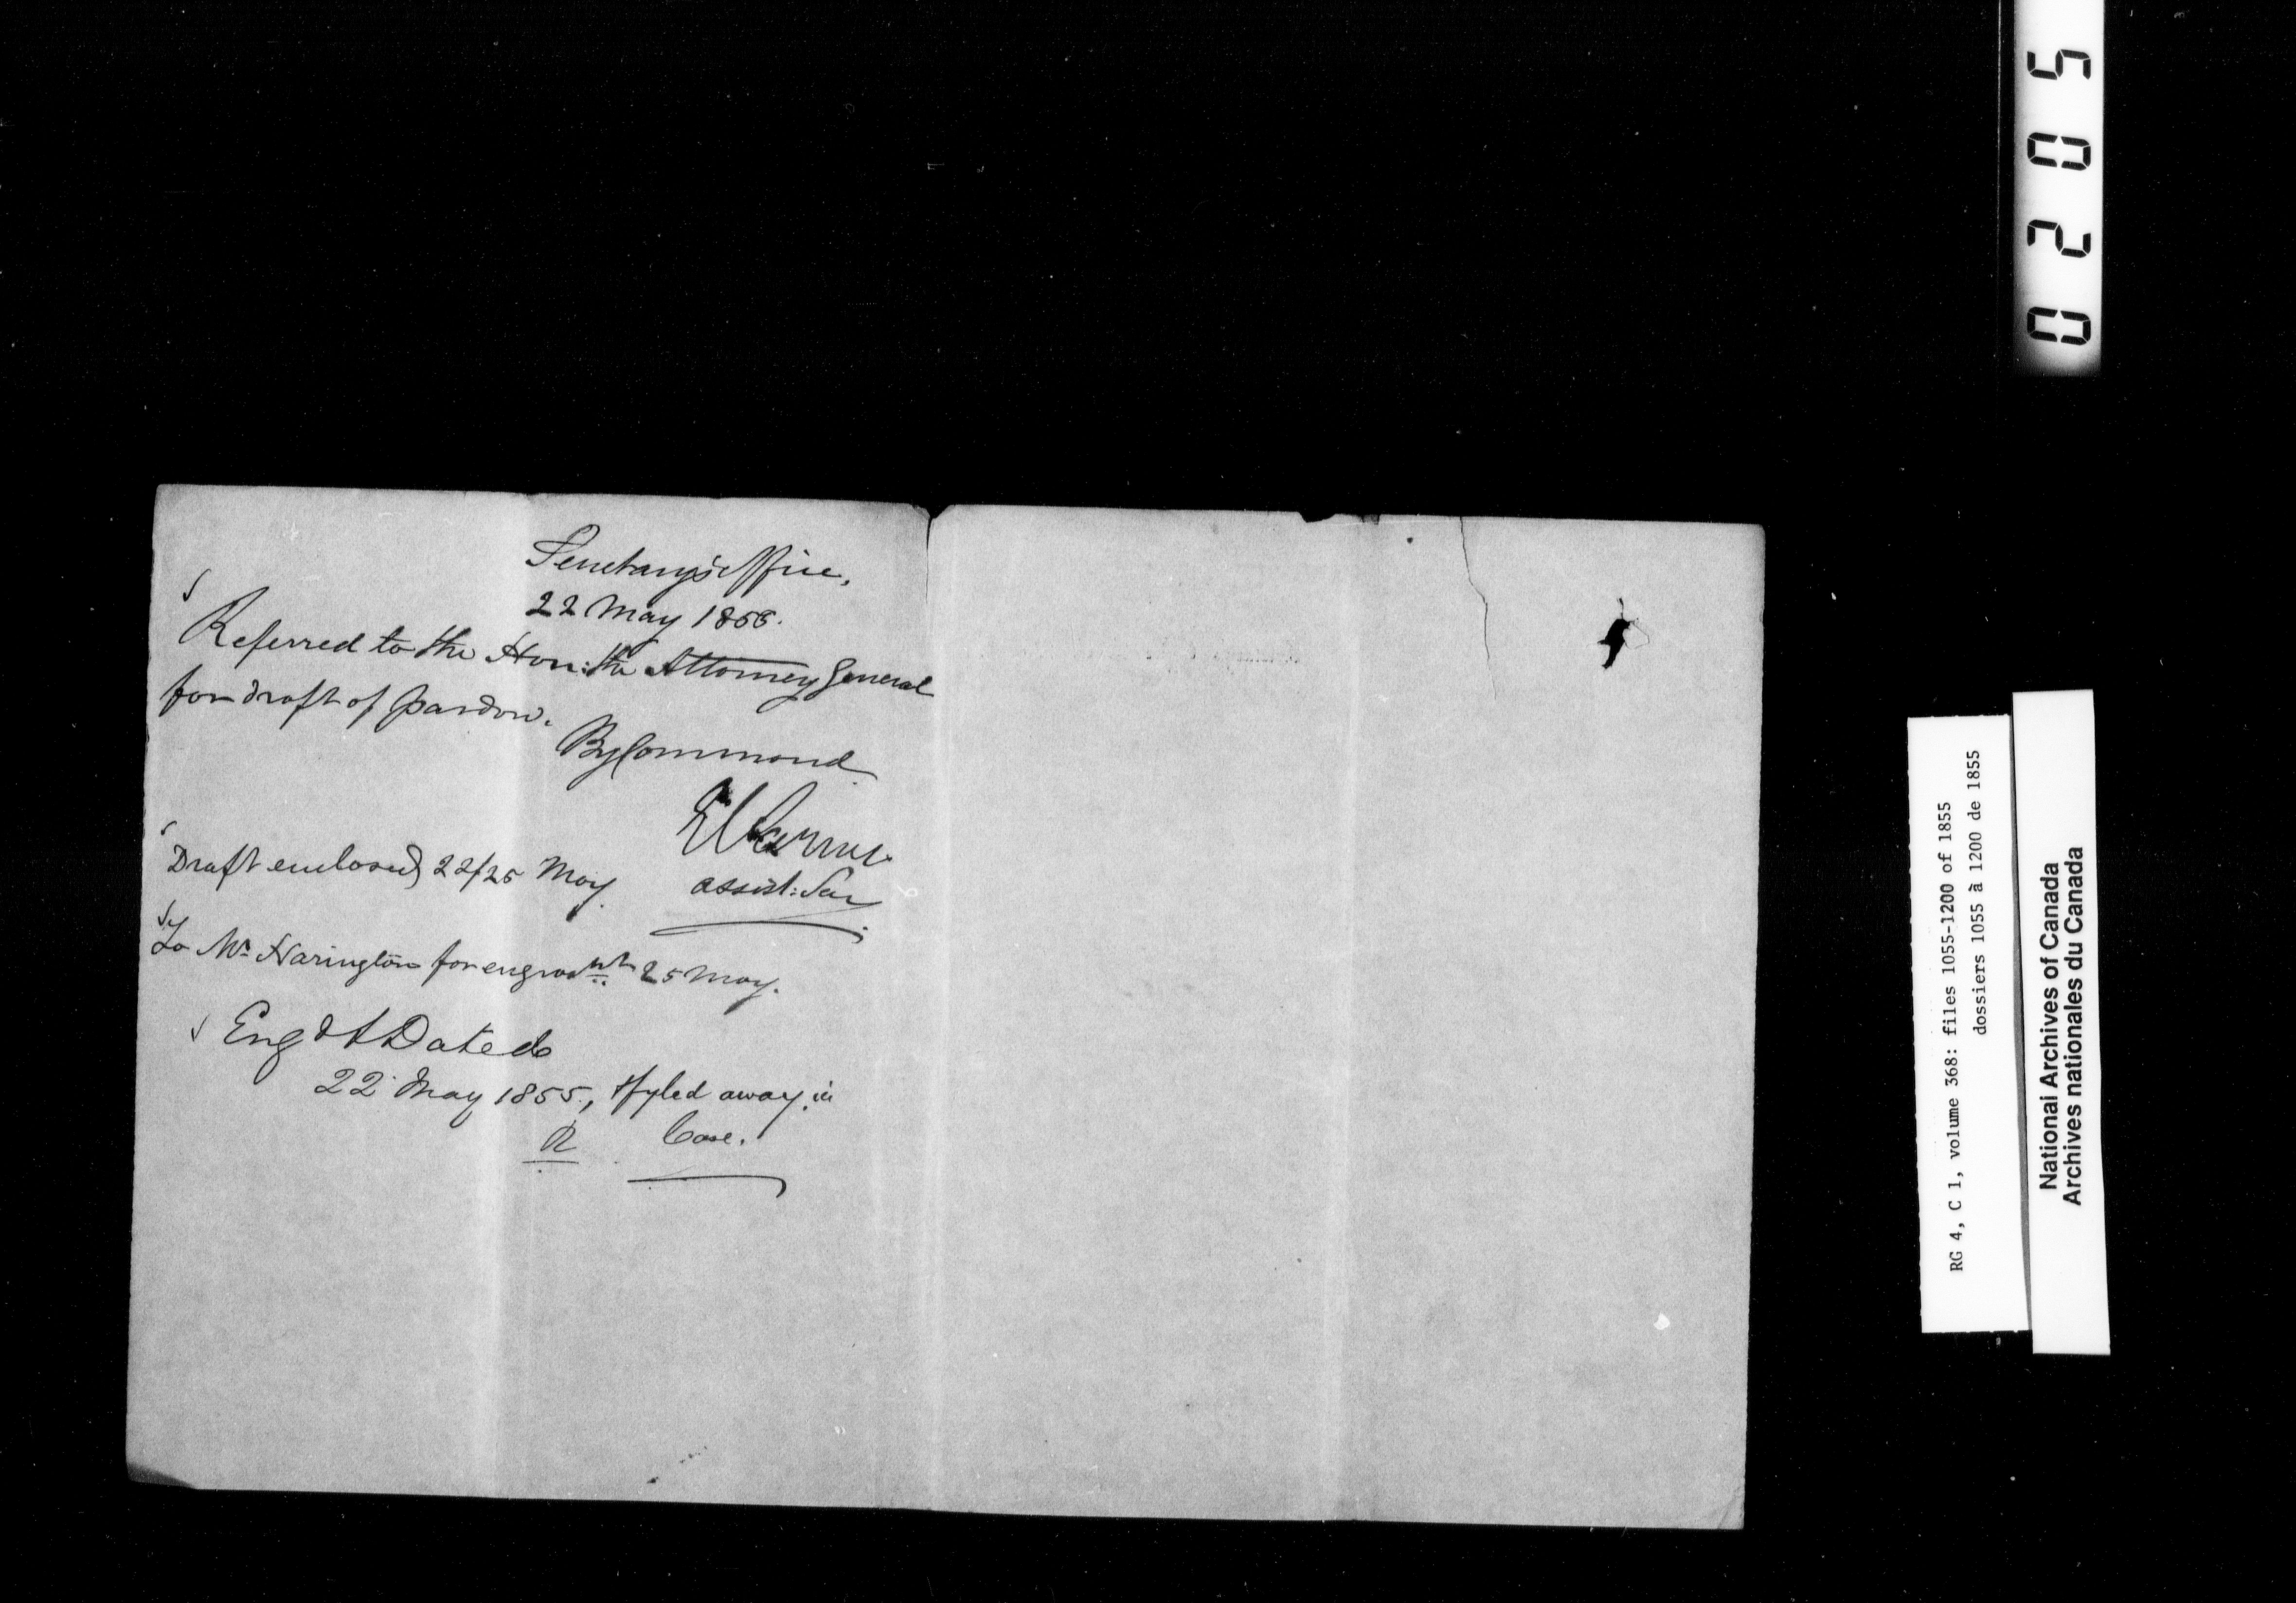 Secretary's Office,
22 May 1855.
Referred to the Hon: the Attorney General
for draft of Pardon.
By Command
assist: Sec
Draft enclosed 22/25 May.
To Mr Harington for engrosst 25 May.
Engd & Dated
22 May 1855, & fyled away in
R Case.
0205
RG 4, C 1, volume 368: files 1055-1200 of 1855
dossiers 1055 à 1200 de 1855
National Archives of Canada
Archives nationales du Canada